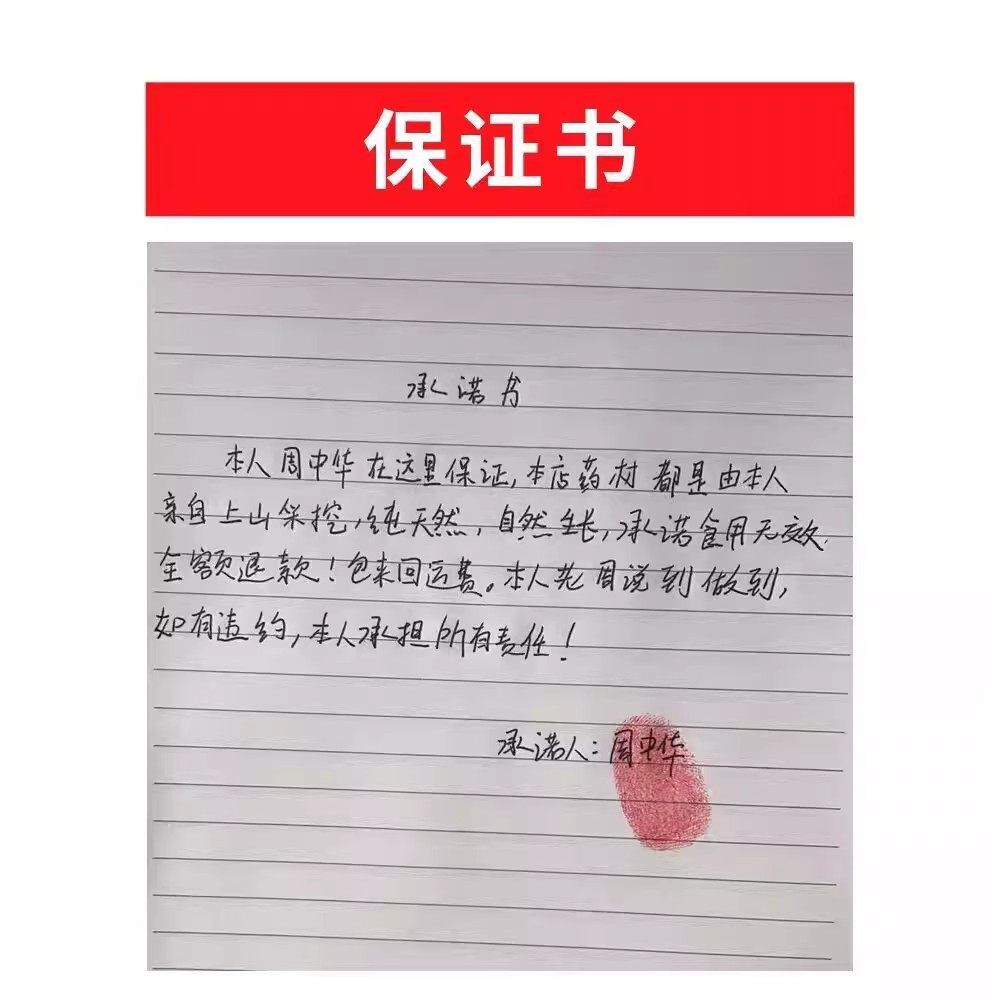 保证书
承诺书
本人周中华在这里保证,本店药材都是由本人
亲自上山采挖,纯天然,自然生长,承诺食用无效
全额退款!包来回运费。本人老周说到做到,
如有违约,本人承担所有责任!
承诺人:周中华